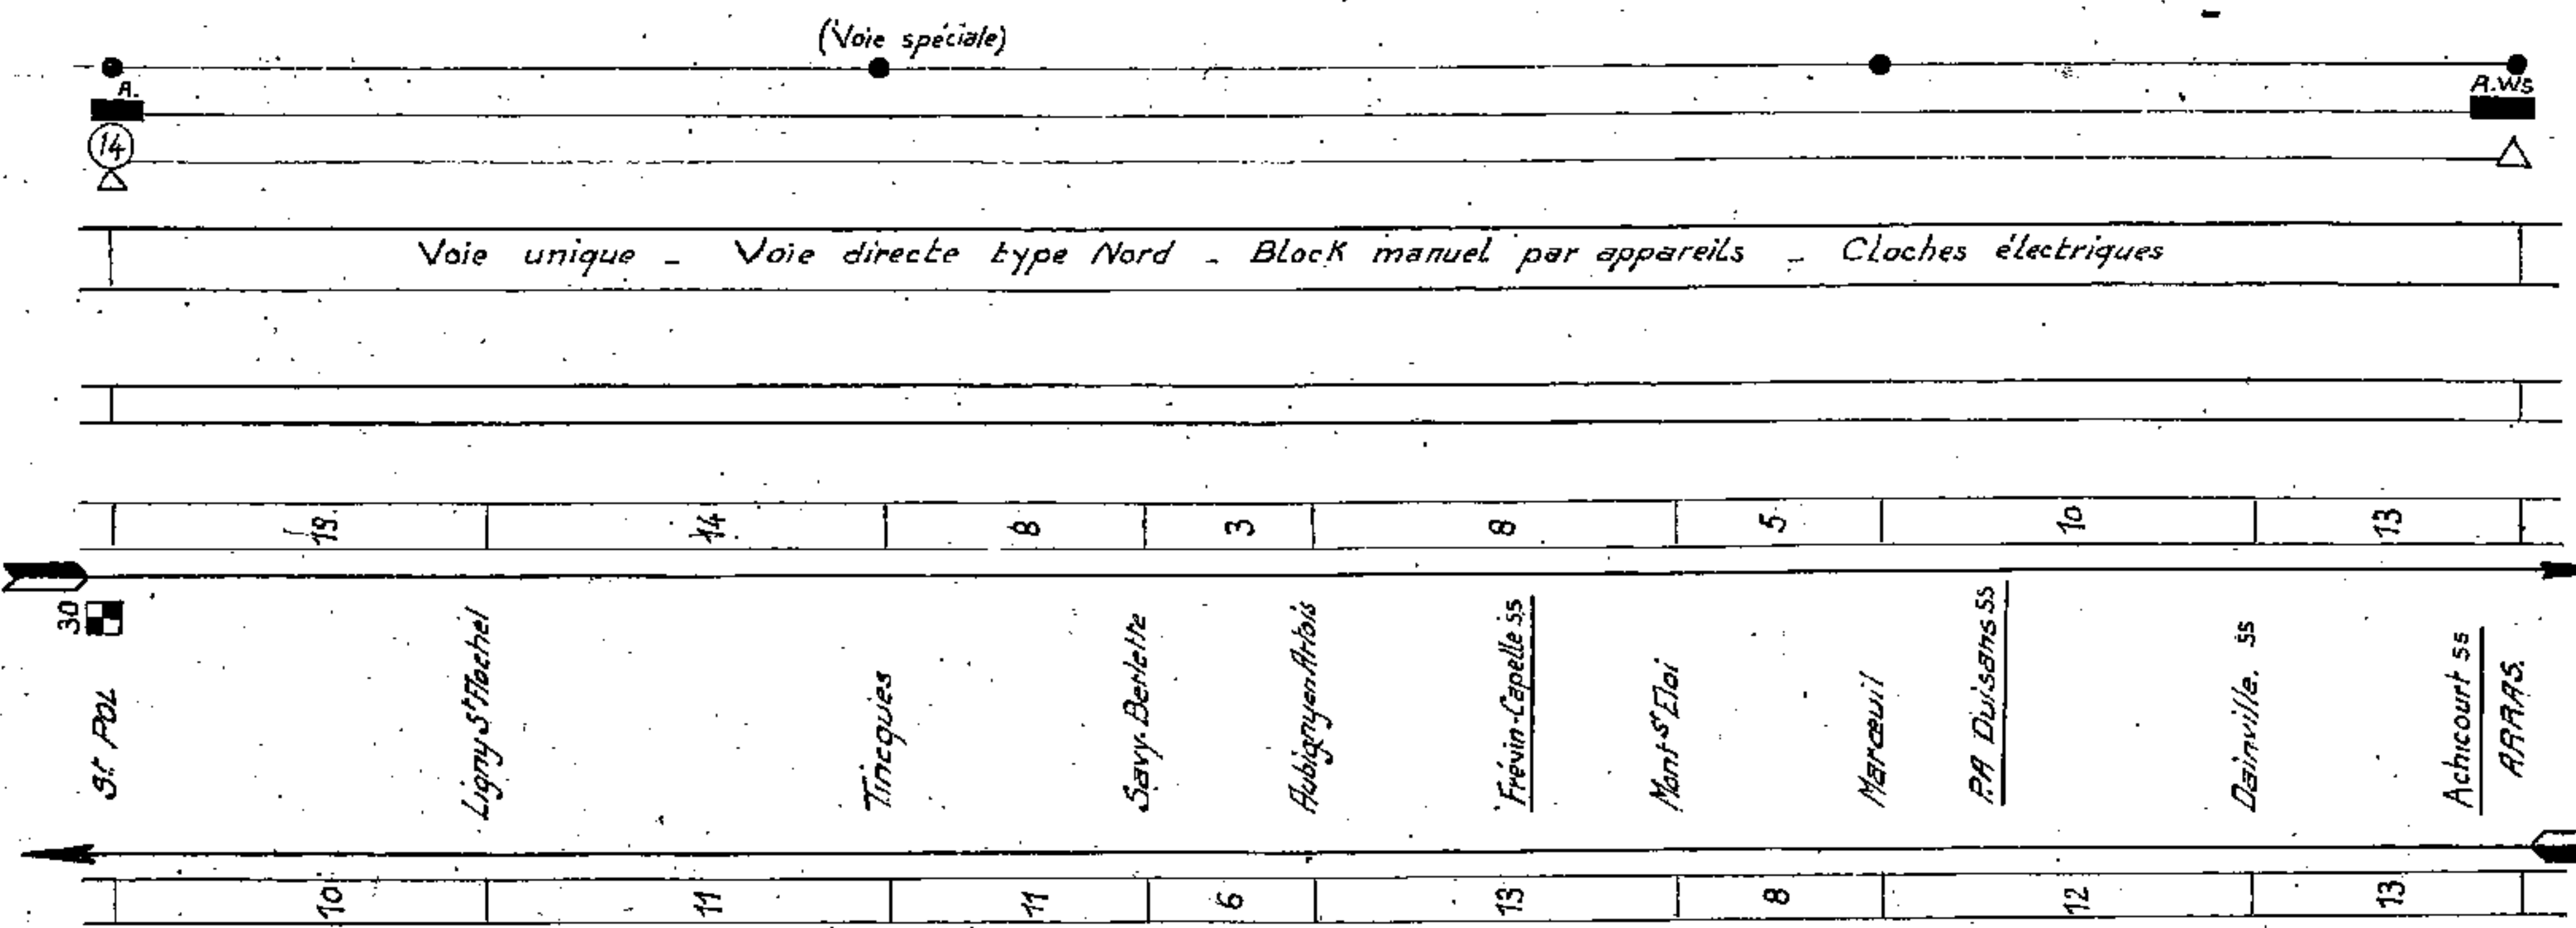 (Voie spéciale)
A.
A.Ws
14
Voie unique - Voie directe type Nord - Block manuel par appareils - Cloches électriques
19 14 8 3 8 5 10 13
30
St POL
Ligny St Flochel
Tincques
Savy-Berlette
Aubigny en Artois
Frévin-Capelle ss
Mont St Eloi
Marœuil
P.A Duisans ss
Dainville. ss
Achicourt ss
ARRAS.
10 11 11 6 13 8 12 13